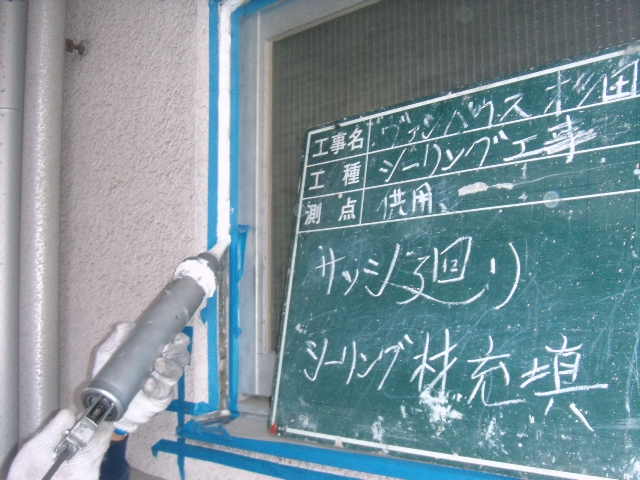 工事名 ヴァンハウス杉田
工種 シーリング工事
測点 供用
サッシ廻り
シーリング材充填